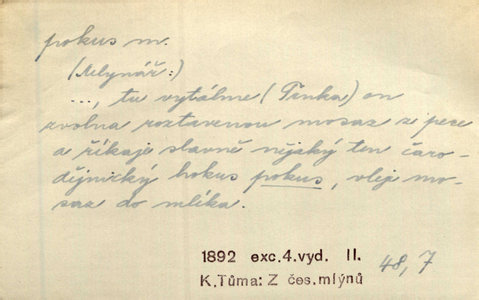 pokus m.
(Mlynář:)
..., tu vytáhne (Trnka) on
zvolna roztavenou mosaz z pece
a říkaje slavně nějaký ten čaro-
dějnický hokus pokus, vlije mo-
saz do mlíka.
1892 exc.4.vyd. II. 48,7
K.Tůma: Z čes.mlýnů